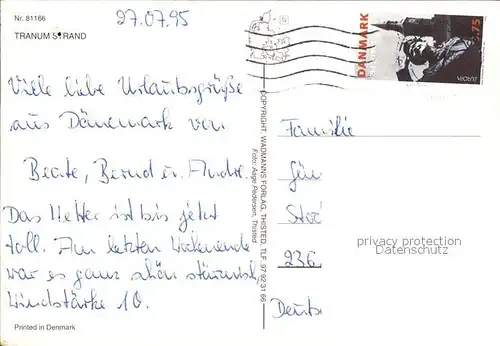 Nr. 81166
TRANUM STRAND
27.07.95
DANMARK
3.75
EUROPA
Viele liebe Urlaubsgrüße
aus Dänemark von
Beate, Bernd u. André.
Das Wetter ist bis jetzt
toll. Am letzten Wochenende
war es ganz schön stürmisch
Windstärke 10.
Printed in Denmark
COPYRIGHT. WADMANNS FORLAG, THISTED. TLF. 97 92 31 66
Foto: Aage Pedersen, Thisted
Familie
Gün
Stoc
236
Deuts
privacy protection
Datenschutz